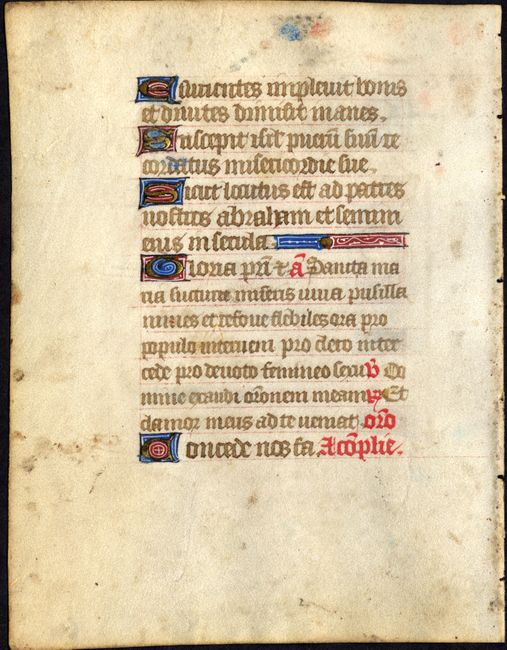 Esurientes implevit bonis
et divites dimisit inanes.
Suscepit isrl puerū suū re
cordatus misericordie sue.
Sicut locutus est ad patres
nostros abraham et semini
eius in secula.
Gloria pri̅ et a̅ Sancta ma
ria succurre miseris iuva pusilla
nimes et refove flebiles ora pro
populo interveni pro clero inter
cede pro devoto femineo sexu V Do
mine exaudi oronem meam R Et
clamor meus ad te veniat oro
Concede nos fa. A cōplie.